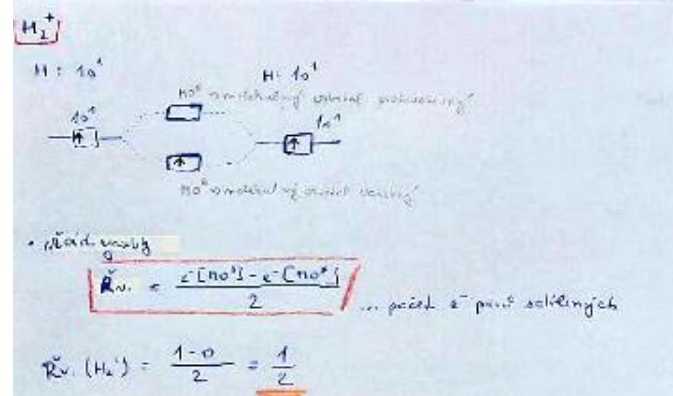 H₂⁺
H: 1s¹ H: 1s¹
MO* molekulový orbital protivazebný
1s¹ 1s¹
MOᵇ molekulový orbital vazebný
• řád vazby
Řv. = e⁻[MOᵇ] - e⁻[MO*] / 2 ... počet e⁻ párů sdílených
Řv. (H₂⁺) = 1-0 / 2 = 1 / 2